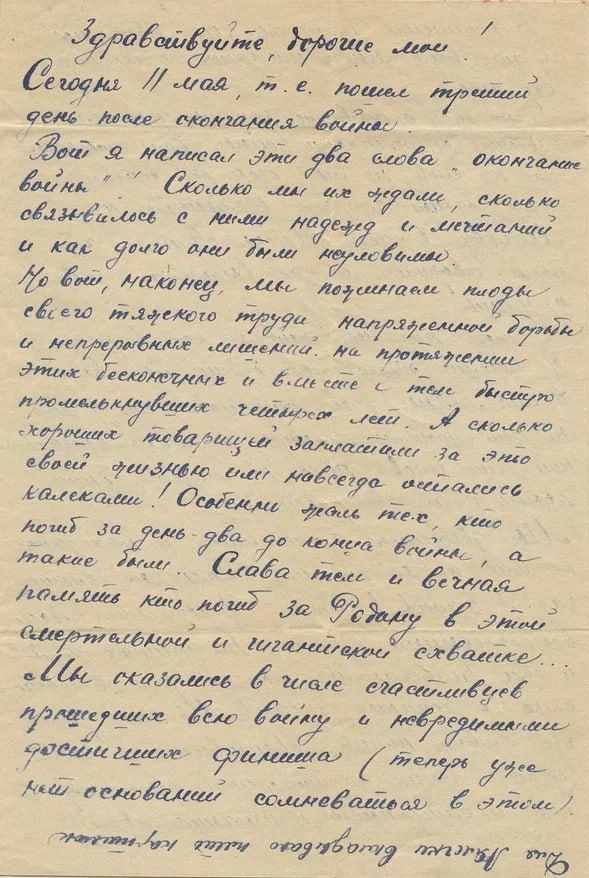 Здравствуйте, дорогие мои!
Сегодня 11 мая, т.е. пошел третий
день после окончания войны.
Вот я написал эти два слова „окончание
войны"! Сколько мы их ждали, сколько
связывалось с ними надежд и мечтаний
и как долго они были неуловимы.
Но вот, наконец, мы пожинаем плоды
своего тяжкого труда, напряженной борьбы
и непрерывных лишений на протяжении
этих бесконечных и вместе с тем быстро
промелькнувших четырех лет. А сколько
хороших товарищей заплатили за это
своей жизнью или навсегда остались
калеками! Особенно жаль тех, кто
погиб за день-два до конца войны, а
такие были. Слава тем и вечная
память кто погиб за Родину в этой
смертельной и гигантской схватке...
Мы оказались в числе счастливцев
прошедших всю войну и невредимыми
достигших финиша (теперь уже
нет основании сомневаться в этом).
Для Лялечки вкладываю пять